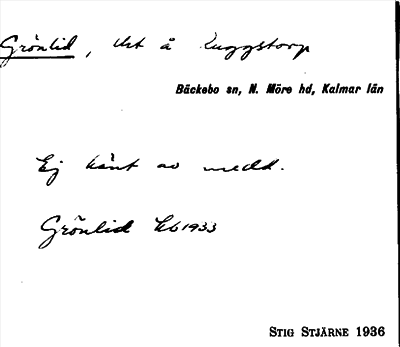 Grönlid, tht å Ruggstorp
Bäckebo sn, N. Möre hd, Kalmar län
Ej känt av medd.
Grönlid Ek 1933
STIG STJÄRNE 1936